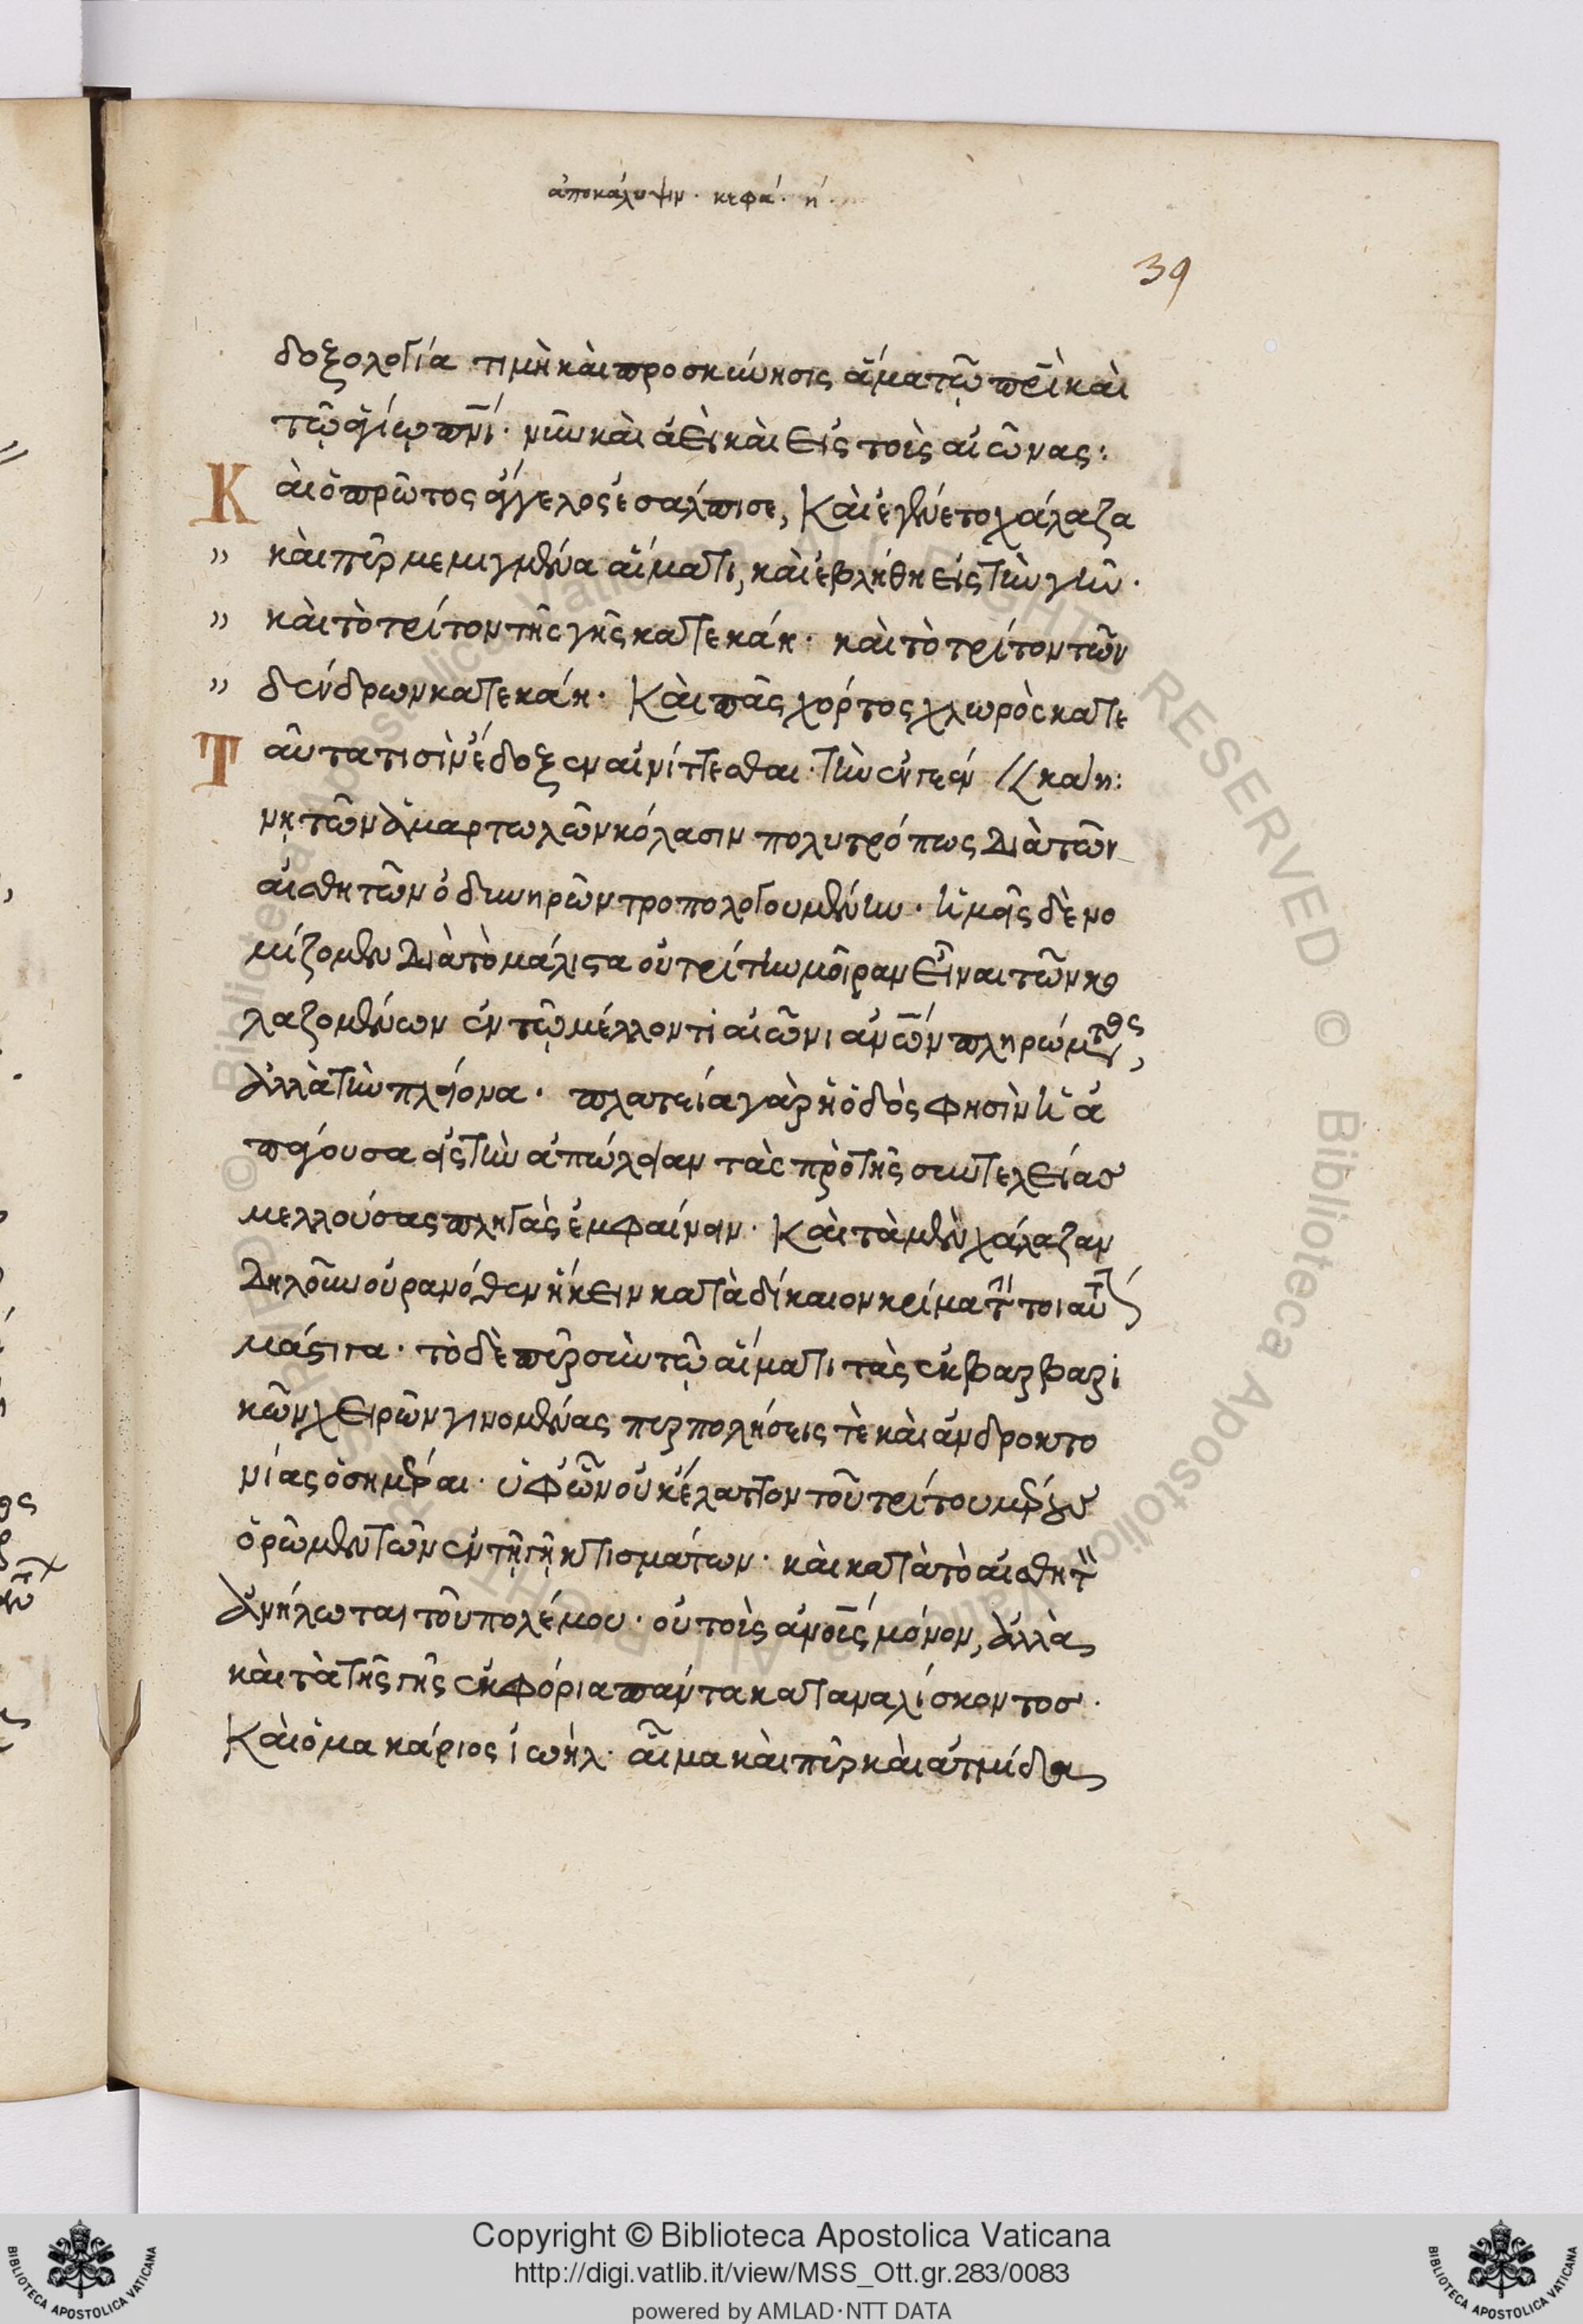 ἀποκάλυψιν. κεφά. η.
39
δοξολογία τιμὴ καὶ προσκύνησις ἅμα τῷ πρὶ καὶ
τῷ ἁγίῳ πνι. νῦν καὶ ἀεὶ καὶ εἰς τοὺς αἰῶνας:
Καὶ ὁ πρῶτος ἄγγελος ἐσάλπισε, Καὶ ἐγένετο χάλαζα
" καὶ πῦρ μεμιγμένα αἵματι, καὶ ἐβλήθη εἰς τὴν γῆν.
" καὶ τὸ τρίτον τῆς γῆς κατεκάη. καὶ τὸ τρίτον τῶν
" δένδρων κατεκάη. Καὶ πᾶς χόρτος χλωρὸς κατε
Ταῦτα τισὶν ἔδοξεν αἰνίττεσθαι. τὴν ἐν γεέν // κάη:
νῃ τῶν ἁμαρτωλῶν κόλασιν πολυτρόπως διὰ τῶν
αἰσθητῶν ὀδυνηρῶν τροπολογουμένην. ἡμᾶς δὲ νο
μίζομεν διὰ τὸ μάλιστα οὐ τρίτην μοῖραν εἶναι τῶν κο
λαζομένων ἐν τῷ μέλλοντι αἰῶνι ἀνῶν πληρώματος,
ἀλλὰ τὴν πλείονα. πλατεία γὰρ ἡ ὁδὸς φησὶν ἡ ἀ
πάγουσα εἰς τὴν ἀπώλειαν τὰς πρὸ τῆς συντελείας
μελλούσας πληγὰς ἐμφαίνειν. Καὶ τὰ μὲν χάλαζαν
δηλοῦν οὐρανόθεν ἥκειν κατὰ δίκαιον κρίμα τὴν τοιαύτ
μάστιγα. τὸ δὲ πῦρ σὺν τῷ αἵματι τὰς ἐκ βαρβαρι
κῶν χειρῶν γινομένας πυρπολήσεις τὲ καὶ ἀνδροκτο
νίας ὁσημέραι. ὑφ' ὧν οὐκ ἔλαττον τοῦ τρίτου μέρους
ὁρῶμεν τῶν ἐν τῇ γῇ κτισμάτων. καὶ κατὰ τὸ αἰσθητ
ἀνήλωται τοῦ πολέμου. οὐ τοὺς ἀνοῦς μόνον, ἀλλὰ
καὶ τὰ τῆς γῆς ἐκφόρια πάντα καταναλίσκοντος.
Καὶ ὁ μακάριος ἰωήλ. αἷμα καὶ πῦρ καὶ ἀτμίδα
Copyright © Biblioteca Apostolica Vaticana
http://digi.vatlib.it/view/MSS_Ott.gr.283/0083
powered by AMLAD·NTT DATA